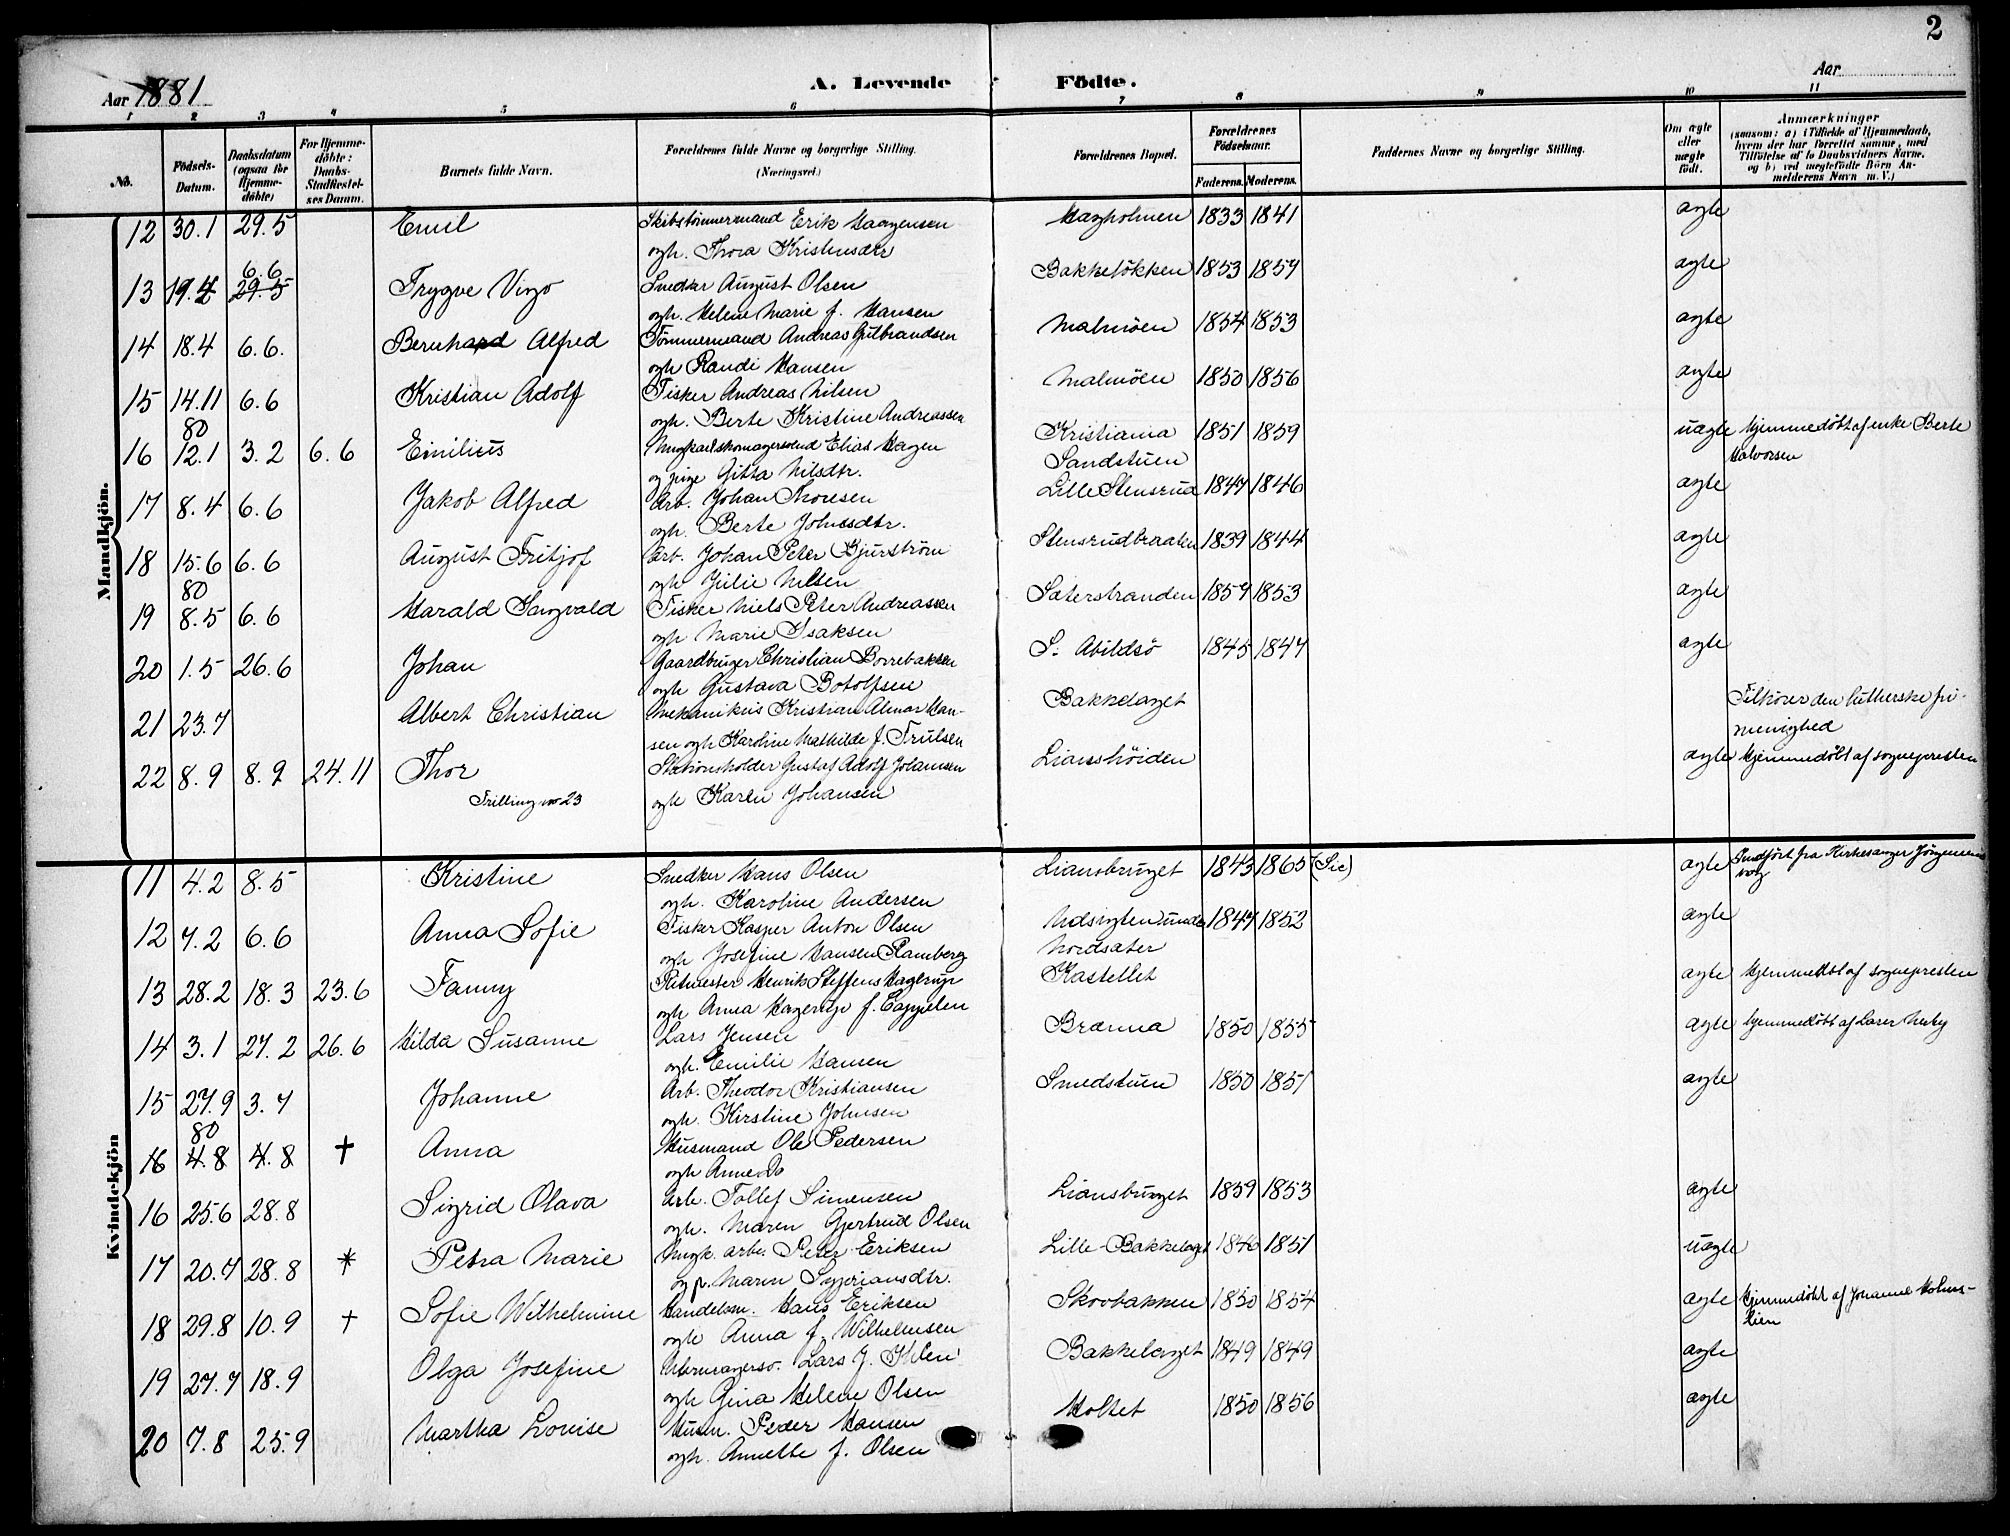 2
Aar 1881
A. Levende Födte.
Aar
1 2 3 4 5 6 7 8 9 10 11
No.
Födsels-Datum.
Daabsdatum (ogsaa for Hjemme-döbte)
For Hjemme-döbte: Daabs-Stadfæstel-ses Datum.
Barnets fulde Navn.
Forældrenes fulde Navne og borgerlige Stilling.
(Næringsvei.)
Forældrenes Bopæl.
Forældrenes Födselsaar.
Faderens. Moderens.
Faddernes Navne og borgerlige Stilling.
Om ægte eller uægte födt.
Anmærkninger
(saasom: a) i Tilfælde af Hjemmedaab,
hvem der har forrettet samme, med
Tilföielse af to Daabsvidners Navne,
og b) ved uægtefödte Börn An-
melderens Navn m. V.)
Mandkjön.
12 30.1 29.5 Emil Skibstömmermand Erik Haagensen Hagholmen 1833 1841 ægte
ogh. Thora Kristensdtr
6.6
13 19.4 29.5 Trygve Vigo Snedker August Olsen Bakkelökken 1853 1857 ægte
ogh. Helene Marie f. Hansen
14 18.4 6.6. Bernhard Alfred Tömmermand Andreas Gulbrandsen Malmöen 1854 1853 ægte
ogh Randi Hansen
15 14.11 6.6 Kristian Adolf Fisker Andreas Nilsen Malmöen 1850 1856 ægte
80
ogh. Berte Kristine Andreassen
16 12.1 3.2 6.6 Emilius Ungkarl skomagersvend Elias Hagen Kristiania 1851 1859 uægte Hjemmedöbt af enke Berte
og pige Gitta Nilsdtr. Sandstuen Halvorsen
17 8.4 6.6 Jakob Alfred Arb. Johan Thoresen Lille Stensrud 1847 1846 ægte
ogh. Berte Johnsdtr.
18 15.6 6.6 August Fritjof Arb. Johan Peter Bjurström Stensrudbraaten 1839 1844 ægte
80
ogh Julie Nilsen
19 8.5 6.6 Harald Sangvald Fisker Niels Peter Andreassen Sæterstranden 1857 1853 ægte
ogh Marie Isaksen
20 1.5 26.6 Johan Gaardbruger Christian Borrebæksen S. Abildsö 1845 1847 ægte
ogh Gustava Botolfsen
21 23.7 Albert Christian Mekanikus Kristian Almar Han- Bakkelaget Tilhörer den lutherske fri-
sen ogh Karoline Mathilde f. Trulsen menighed
22 8.9 8.9 24.11 Thor Stationsholder Gustaf Adolf Johansen Lianshöiden ægte Hjemmedöbt af sognepresten
Trilling no 23 ogh Karen Johansen
Kvindekjön
11 4.2 8.5 Kristine Snedker Hans Olsen Liansbruget 1843 1865 (Sic) ægte Indfört fra Kirkesanger Jörgensens
ogh. Karoline Andersen bog
12 7.2 6.6 Anna Sofie Fisker Kasper Anton Olsen Udsigten under 1847 1852 ægte
ogh Josefine Hansen Ramberg Nordsæter
13 28.2 18.3 23.6 Fanny Ritmester Henrik Steffens Hagerup Kastellet ægte Hjemmedöbt af sognepresten
ogh Anna Hagerup f. Cappelen
14 3.1 27.2 26.6 Hilda Susanne Lars Jensen Brænna 1850 1855 ægte Hjemmedöbt af Lærer
ogh. Emilie Hansen
15 27.9 3.7 Johanne Arb. Theodor Kristiansen Smedstuen 1850 1851 ægte
80
ogh. Kirstine Johnsen
16 4.8 4.8 † Anna Husmand Ole Pedersen
ogh Anne Do
16 25.6 28.8 Sigrid Olava Arb. Tollef Simensen Liansbruget 1859 1853 ægte
ogh. Maren Gjertrud Olsen
17 20.7 28.8 * Petra Marie Ungk. arb. Peter Eriksen Lille-Bakkelaget 1846 1851 uægte
og p. Maren Syprïansdtr.
18 29.8 10.9 † Sofie Wilhelmine Handelsm. Hans Eriksen Skovbakken 1850 1854 ægte Hjemmedöbt af Johanne Holms-
ogh Anna f. Wilhelmsen lien
19 27.7 18.9 Olga Josefine Uhrmagersv. Lars J. Ihlen Bakkelaget 1849 1849 ægte
ogh Gina Helene Olsen
20 7.8 25.9 Martha Lovise Husm. Peder Hansen Holtet 1850 1856 ægte
ogh. Annette f. Olsen